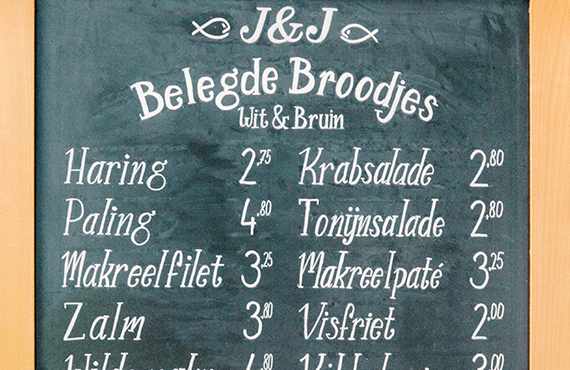 J&J
Belegde Broodjes
Wit & Bruin
Haring 2.75 Krabsalade 2.80
Paling 4.80 Tonijnsalade 2.80
Makreelfilet 3.25 Makreelpaté 3.25
Zalm 3.80 Visfriet 2.00
4.80 3.00